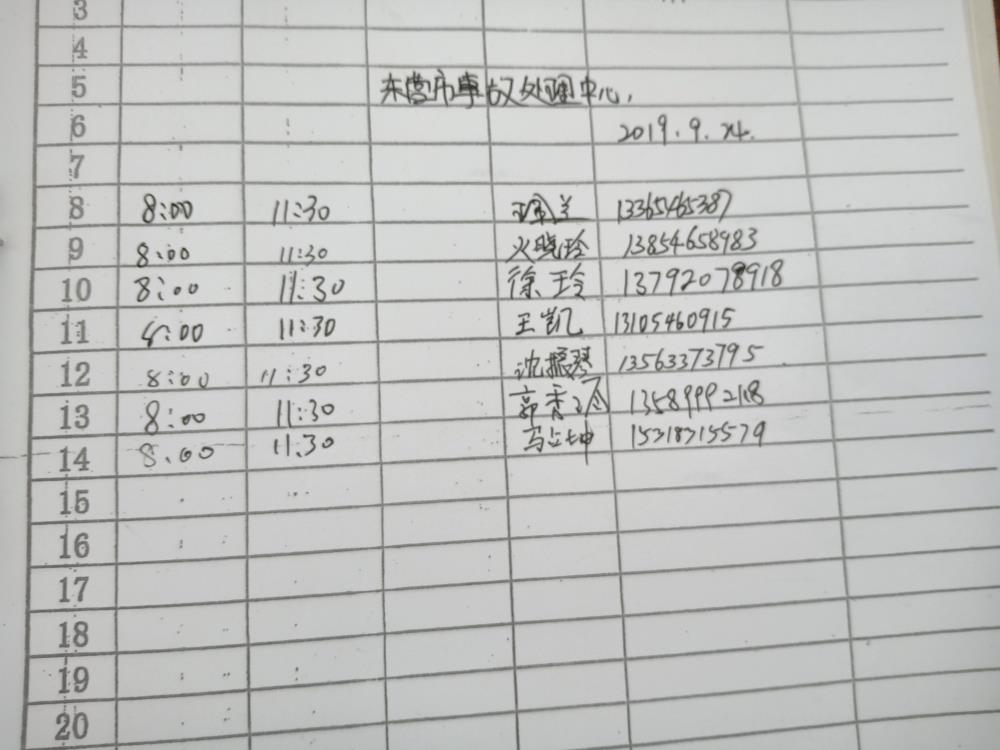 3
4
5 东营市事故处理中心,
6 2019.9.24.
7
8 8:00 11:30 13365465387
9 8:00 11:30 火晓玲 13854658983
10 8:00 11:30 徐玲 13792078918
11 8:00 11:30 王凯 13105460915
12 8:00 11:30 沈振琴 13563373795
13 8:00 11:30 郭秀 1358999
14 8:00 11:30 马占坤 15318315579
15
16
17
18
19
20